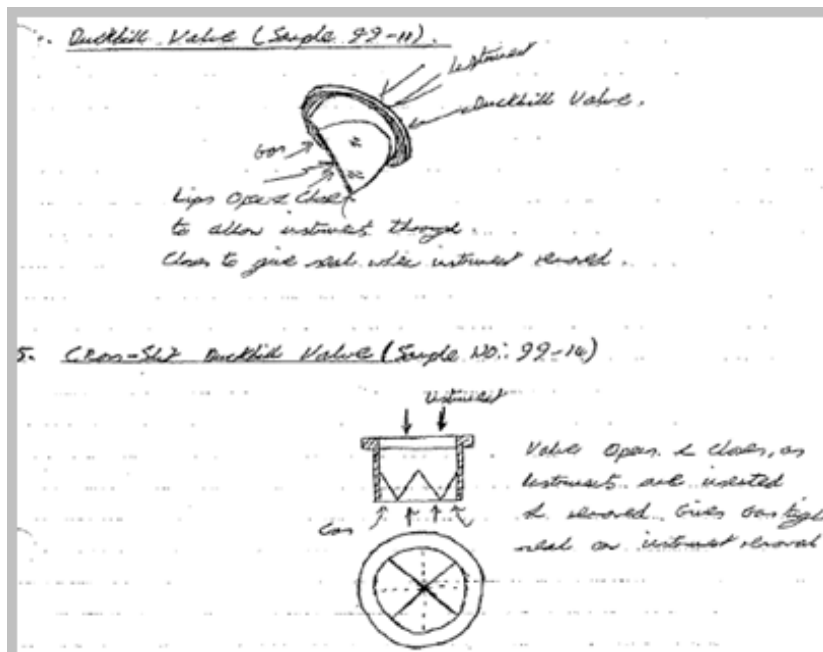 . Duckbill Valve (Sample 99-11).
Instrument
Duckbill Valve.
Gas
Lips Open & Close
to allow instrument through.
Closes to give seal when instrument removed.
5. Cross-Slit Duckbill Valve (Sample NO: 99-14)
Instrument
Valve Opens & Closes, as
Instruments are inserted
& removed. Gives Gas tight
seal on instrument removal
Gas